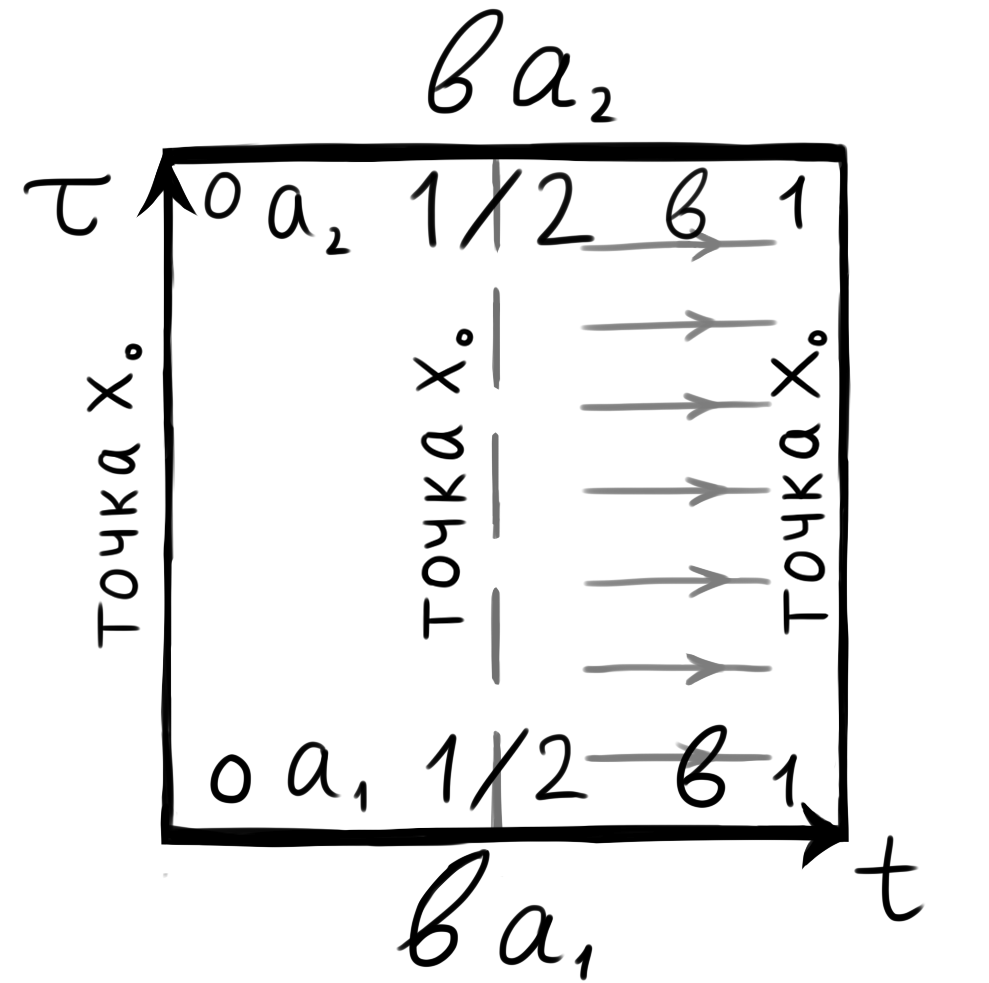 в a₂
τ
0 a₂ 1/2 в 1
точка x₀
точка x₀
точка x₀
0 a₁ 1/2 в 1
t
в a₁